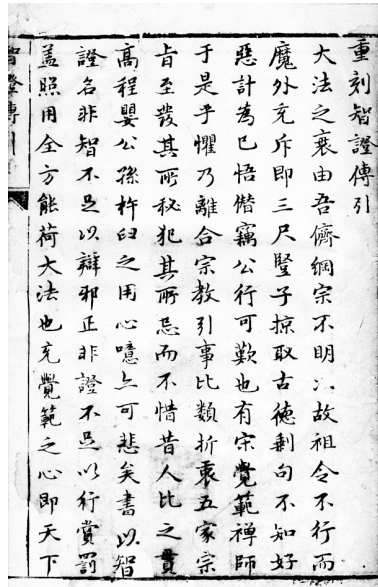 重刻智證傳引
大法之衰由吾儕綱宗不明以故祖令不行而
魔外充斥即三尺豎子掠取古德剩句不知好
惡計為己悟僭竊公行可歎也有宋覺範禪師
于是乎懼乃離合宗教引事比類折衷五家宗
旨至發其所秘犯其所忌而不惜昔人比之貫
高程嬰公孫杵臼之用心噫亦可悲矣書以智
證名非智不足以辯邪正非證不足以行賞罰
蓋照用全方能荷大法也充覺範之心即天下
智證傳引